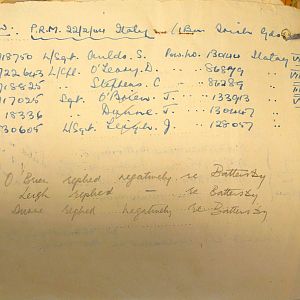 P.R.M. 22/2/44 Italy - (1 Bn Irish Gds)
18750 L/Sgt. S. Pow.No. 130 Stalag VII
722643 L/Cpl. O'Leary. D. - 86899 " VII
18825 " Stephens. C - 86289 "
17025 Sgt. O'Brien. J. - 133913 "
18336 " Duane. J. - 130447 "
30605 L/Sgt. Leigh. J. - 128057 "
O'Brien replied negatively re Battersby
Leigh replied — re Battersby
Duane replied negatively re Battersby